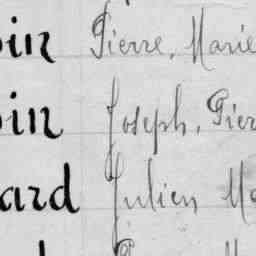 in Pierre, Marie
in Joseph, Pier
ard Julien Ma